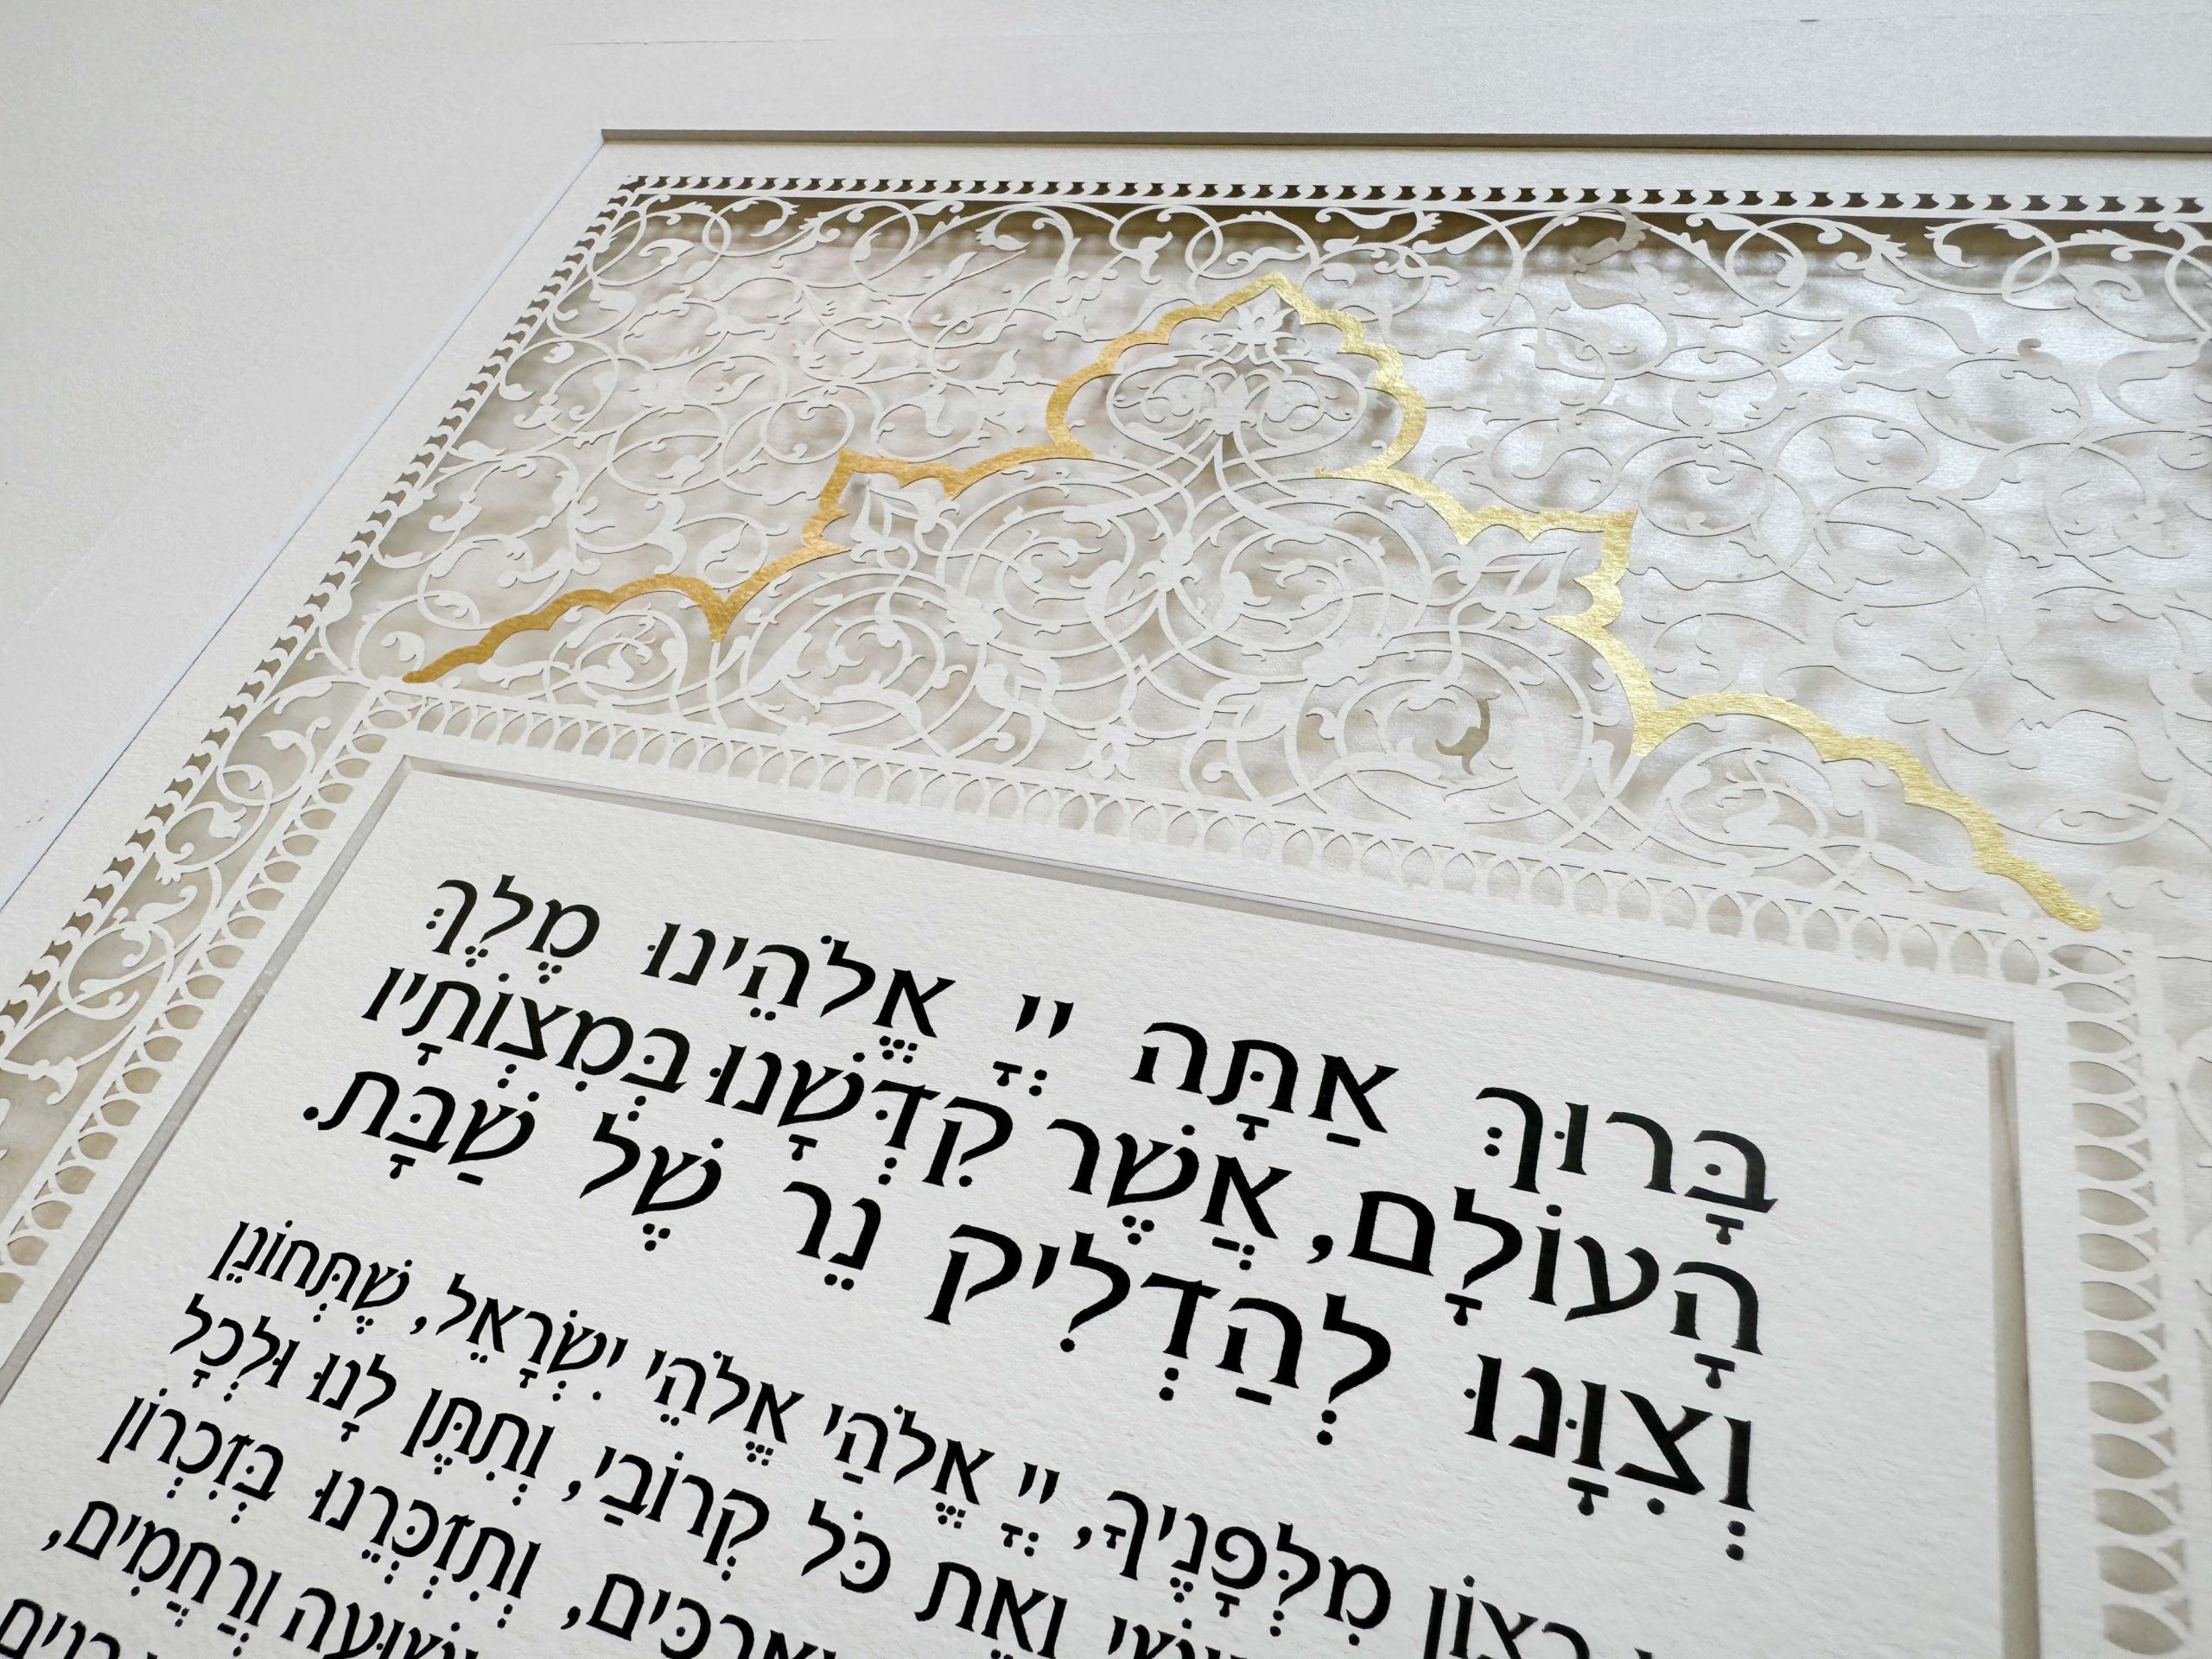 בָּרוּךְ אַתָּה יְיָ אֱלֹהֵינוּ מֶלֶךְ
הָעוֹלָם, אֲשֶׁר קִדְּשָׁנוּ בְּמִצְוֹתָיו
וְצִוָּנוּ לְהַדְלִיק נֵר שֶׁל שַׁבָּת.
רָצוֹן מִלְּפָנֶיךָ, יְיָ אֱלֹהַי אֱלֹהֵי יִשְׂרָאֵל, שֶׁתְּחוֹנֵן
וְאֶת כֹּל קְרוֹבַי, וְתִתֶּן לָנוּ וּלְכָל
וַאֲרֻכִּים, וְתִזְכְּרֵנוּ בְּזִכְרוֹן
יְשׁוּעָה וְרַחֲמִים,